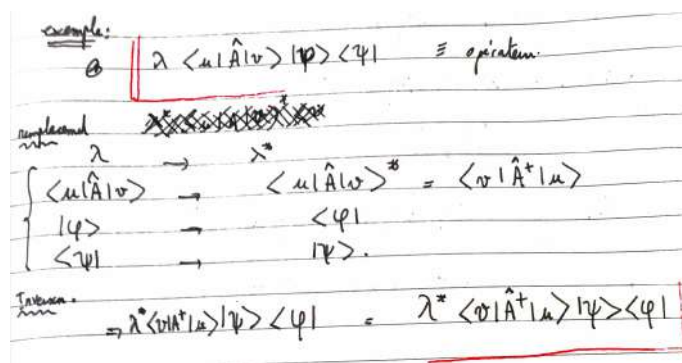 exemple:
λ <u|Â|v> |φ> <ψ| ≡ opérateur.
remplacement
λ → λ*
<u|Â|v> → <u|Â|v>* = <v|Â⁺|u>
|φ> → <φ|
<ψ| → |ψ>.
Inversion.
⇒ λ*<v|A⁺|u>|ψ><φ| = λ* <v|Â⁺|u>|ψ><φ|